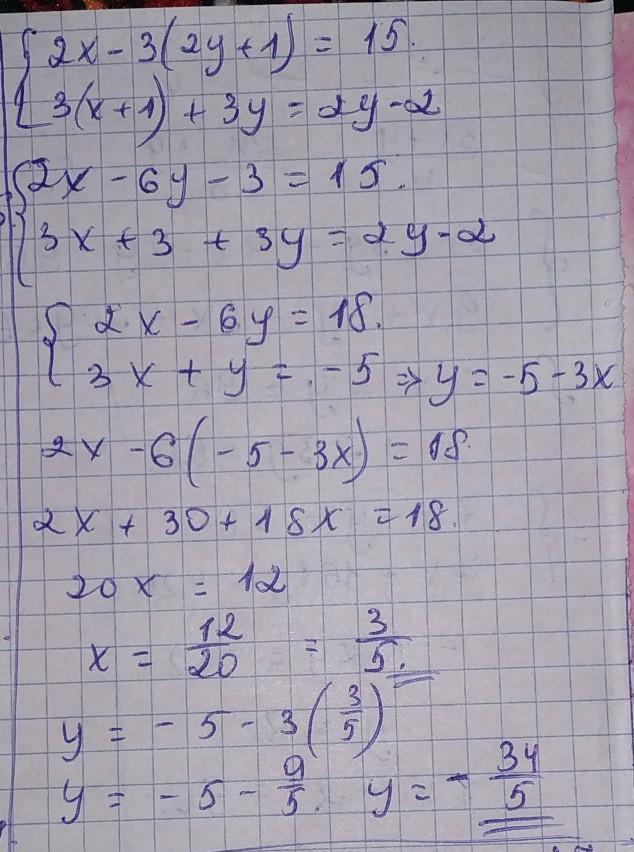 2x - 3(2y+1) = 15.
3(x+1) + 3y = 2y - 2
2x - 6y - 3 = 15.
3x + 3 + 3y = 2y - 2
2x - 6y = 18.
3x + y = -5 => y = -5 - 3x
2x - 6(-5 - 3x) = 18.
2x + 30 + 18x = 18.
20x = 12
x = 12/20 = 3/5.
y = -5 - 3(3/5)
y = -5 - 9/5. y = - 34/5